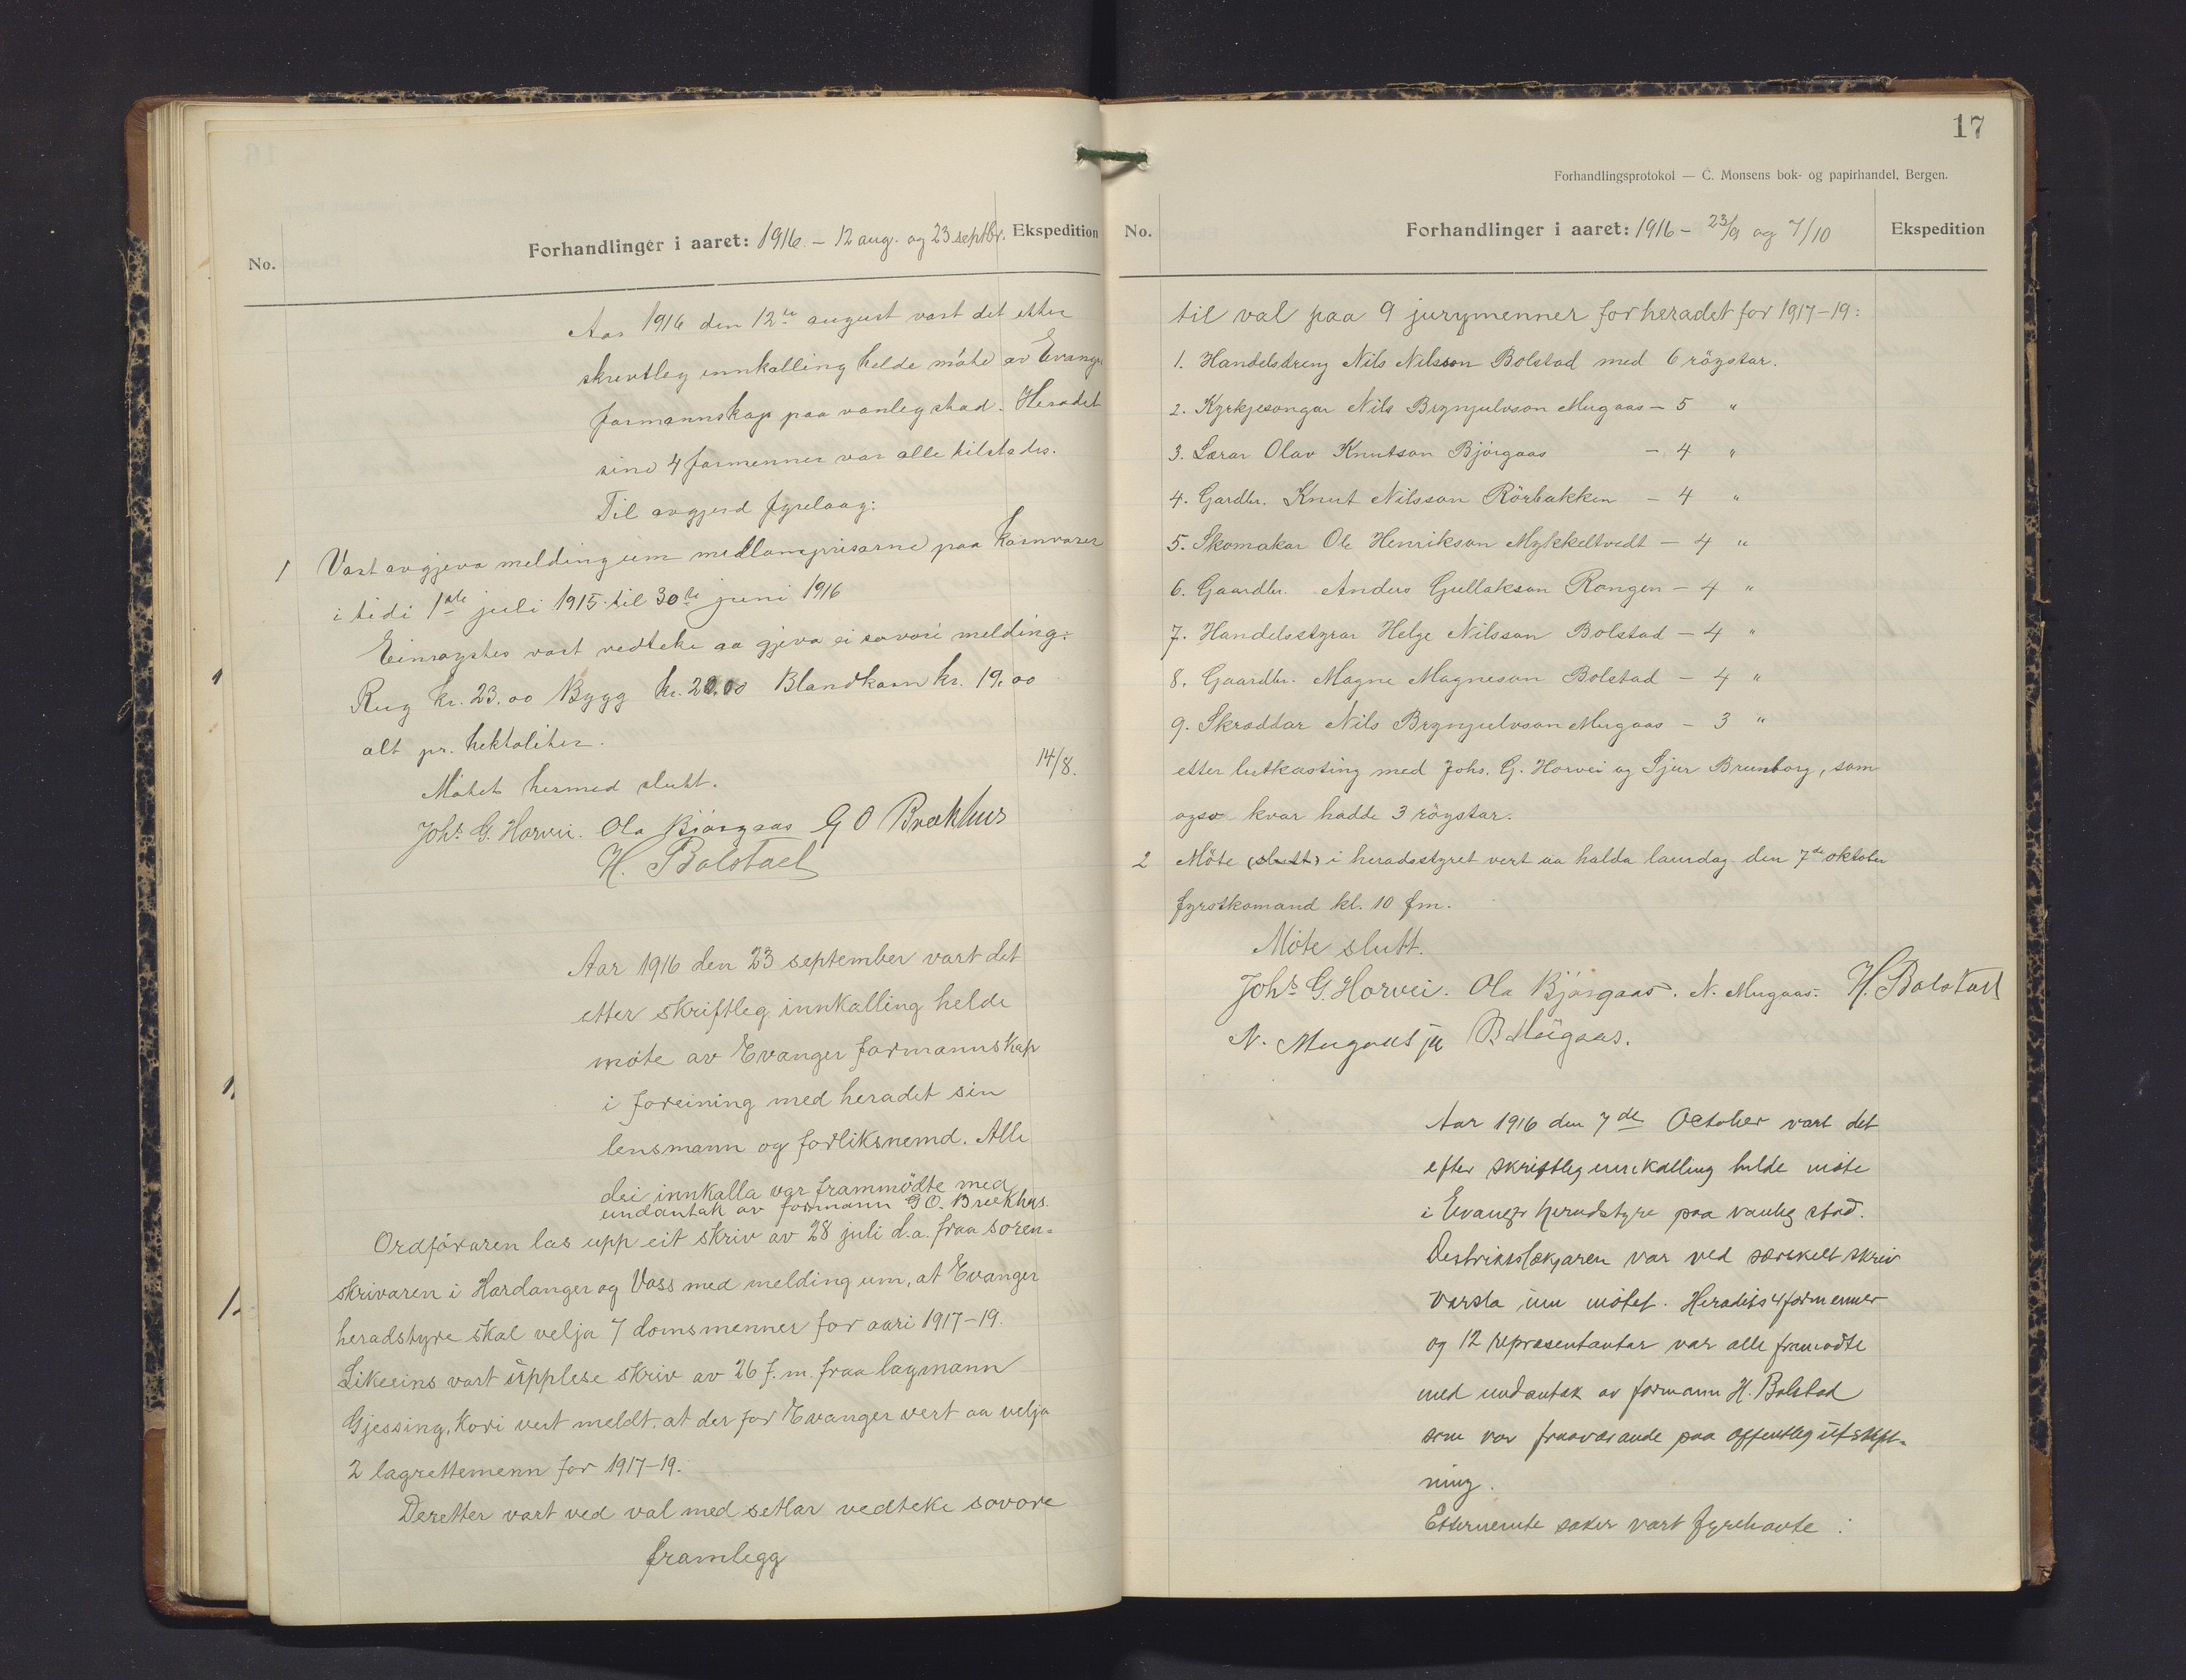 No.
Forhandlinger i aaret: 1916. – 12 aug. og 23 septbr.
Ekspedition
Aar 1916 den 12te august vart det etter
skrivtleg innkalling helde möte av Evanger
formannskap paa vanleg stad. Heradet
sine 4 formenner var alle tilstades.
Til avgjerd fyrelaag:
1 Vart avgjeva melding um medlomsprisarne paa kornvarer
i tidi 1ste juli 1915 til 30te juni 1916
Einröystes vart vedteke aa gjeva ei sovori melding:
Rug kr. 23.00 Bygg kr. 20.00 Blandkorn kr. 19.00
alt pr. hektoliter.
14/8.
Mötet hermed slutt.
Johs. G. Horvei. Ola Björgaas G O Brækhus
H. Bolstad
Aar 1916 den 23 september vart det
etter skriftleg innkalling helde
möte av Evanger formannskap
i foreining med heradet sin
lensmann og forliksnemd. Alle
dei innkalla var frammödte med
undantak av formann G O. Brækhus.
Ordföraren las upp eit skriv av 28 juli d.a. fraa soren-
skrivaren i Hardanger og Voss med melding um, at Evanger
heradstyre skal velja 7 domsmenner for aari 1917-19.
Likeeins vart upplese skriv av 26 f.m. fraa lagmann
Gjessing, kori vert meldt, at der for Evanger vert aa velja
2 lagrettemenn for 1917-19.
Deretter vart ved val med setlar vedteke sovore
framlegg
17
Forhandlingsprotokol — C. Monsens bok- og papirhandel, Bergen.
No.
Forhandlinger i aaret: 1916 – 23/9 og 7/10
Ekspedition
til val paa 9 jurymenner for heradet for 1917-19:
1. Handelsdreng Nils Nilsson Bolstad med 6 röystar.
2. Kyrkjesongar Nils Brynjulvson Mugaas – 5 "
3. Lærar Olav Knutson Björgaas – 4 "
4. Gardbr. Knut Nilsson Rörbakken – 4 "
5. Skomakar Ole Henrikson Mykkeltvedt – 4 "
6. Gaardbr. Anders Gullakson Rongen – 4 "
7. Handelsstyrar Helge Nilsson Bolstad – 4 "
8. Gaardbr. Magne Magneson Bolstad – 4 "
9. Skræddar Nils Brynjulvson Mugaas – 3 "
etter lutkasting med Johs. G. Horvei og Sjur Brunborg, som
ogso kvar hadde 3 röystar.
2 Möte (slutt) i heradsstyret vert aa halda laurdag den 7de oktober
fyrstkomand kl. 10 fm.
Möte slutt.
Johs. G. Horvei. Ola Björgaas. N. Mugaas. H. Bolstad
N. Mugaas jr B Mugaas.
Aar 1916 den 7de October vart det
efter skriftleg innkalling helde möte
i Evanger heradstyre paa vanleg stad.
Destriktslækjaren var ved særskelt skriv
varsla um mötet. Heradets 4 formenner
og 12 repræsentantar var alle framödte
med undantak av formann H. Bolstad
som var fraaværande paa offentleg utskift-
ning.
Etternemte saker vart fyrehavte: